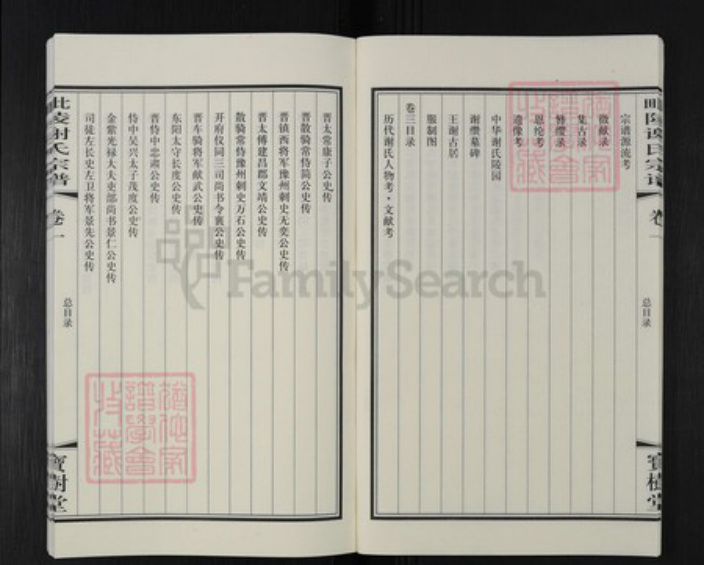 毗陵谢氏宗谱
卷一
总目录
寳樹堂
宗谱源流考
征献录
集古录
簪缨录
恩纶考
遗像考
中华谢氏陵园
谢缵墓碑
王谢古居
服制图
卷三目录
历代谢氏人物考·文献考
晋太常康子公史传
晋散骑常侍简公史传
晋镇西将军豫州刺史无奕公史传
晋太傅建昌郡文靖公史传
散骑常侍豫州刺史万石公史传
开府仪同三司尚书令襄公史传
晋车骑将军献武公史传
东阳太守长度公史传
晋侍中忠肃公史传
侍中吴兴太子茂度公史传
金紫光禄大夫吏部尚书景仁公史传
司徒左长史左卫将军景先公史传
毗陵谢氏宗谱
卷一
总目录
寳樹堂
FamilySearch